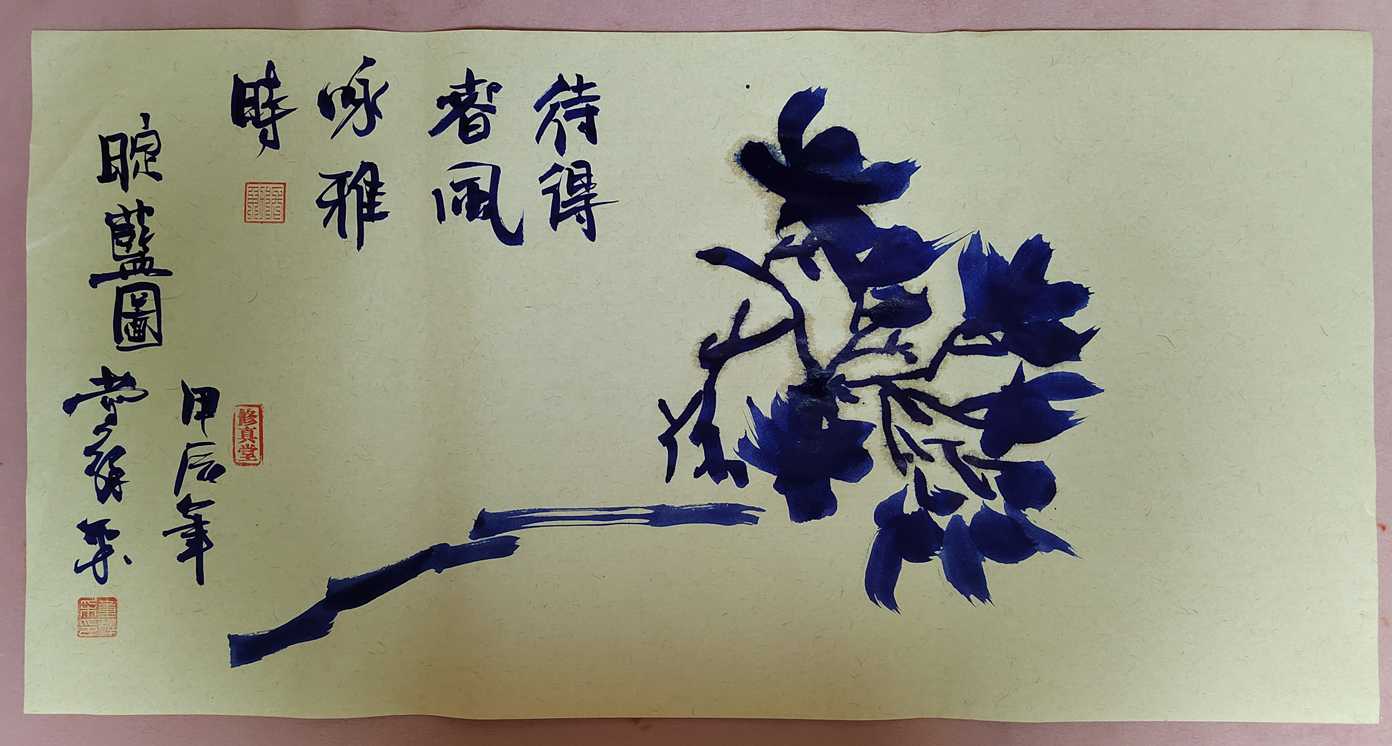 待得
春風
咏雅
時
藍圖
甲辰年
修真堂